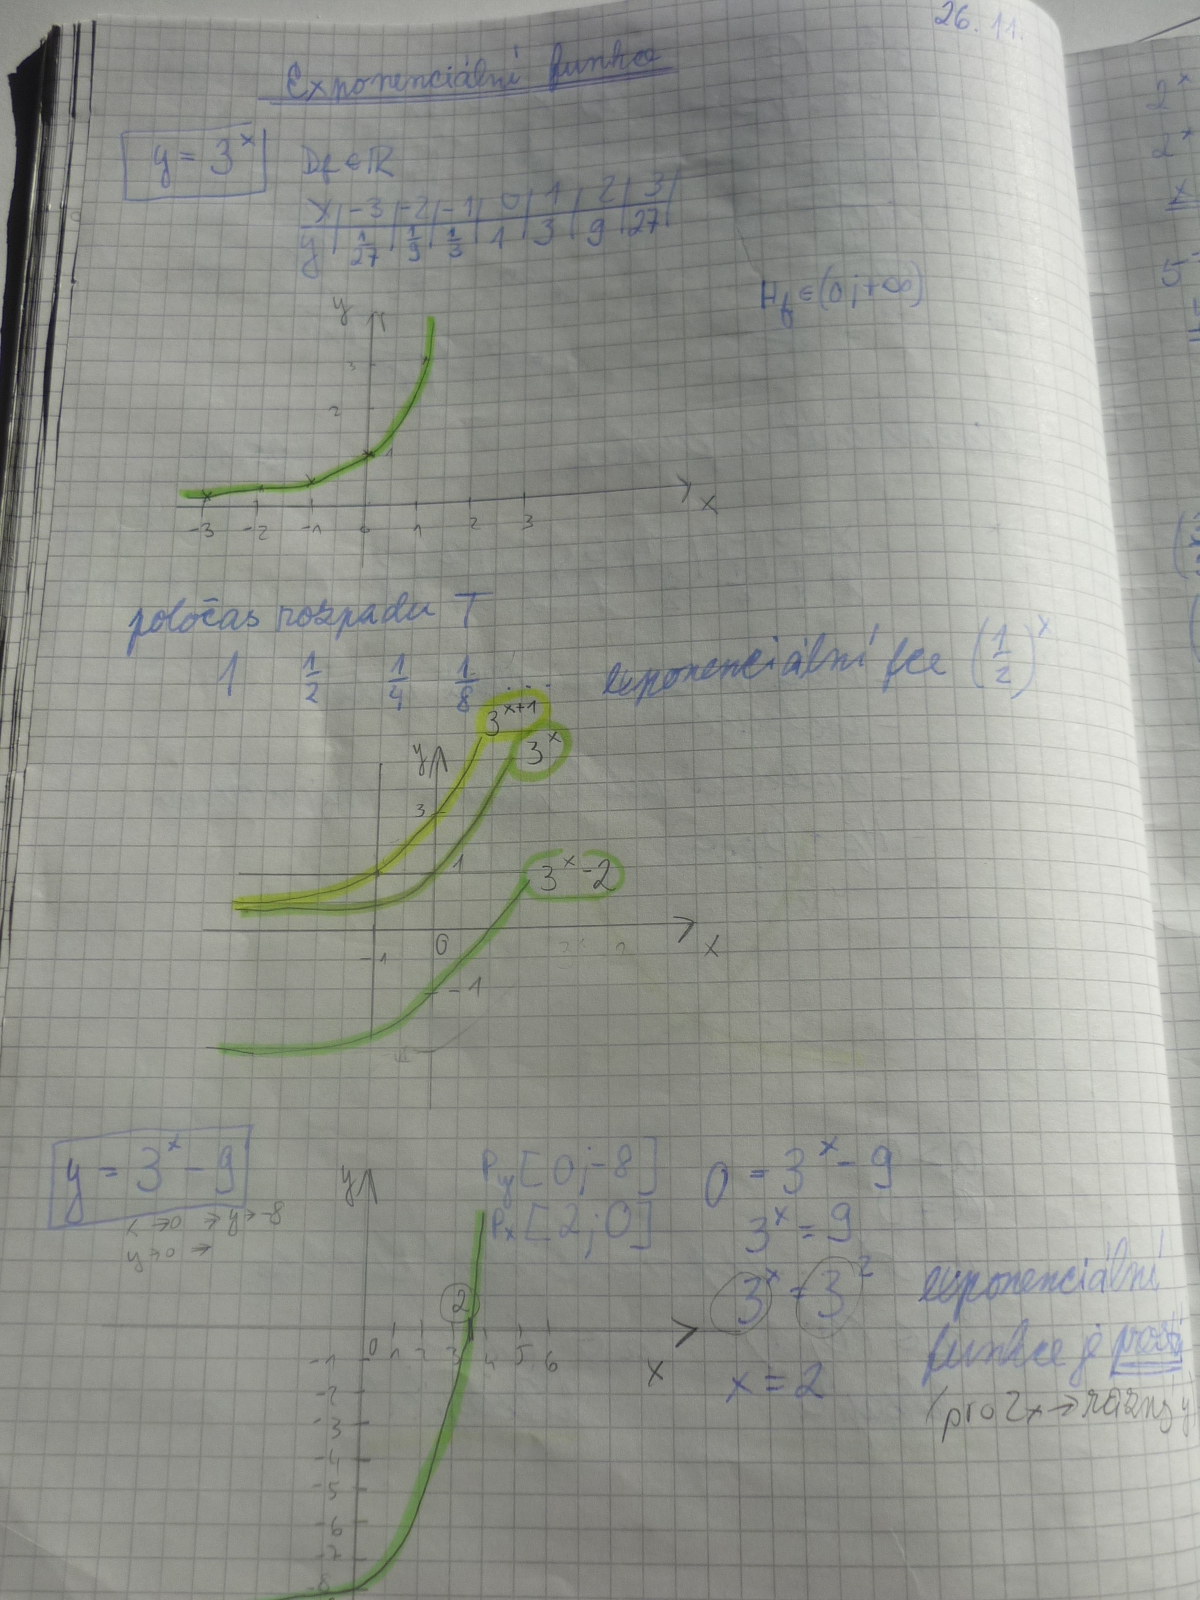 26. 11.
Exponenciální funkce
y = 3^x
Df ∈ ℝ
x | -3 | -2 | -1 | 0 | 1 | 2 | 3 |
y | 1/27 | 1/9 | 1/3 | 1 | 3 | 9 | 27 |
Hf ∈ (0; +∞)
y
3
2
1
-3 -2 -1 0 1 2 3 x
poločas rozpadu T
1 1/2 1/4 1/8 ... exponenciální fce (1/2)^x
3^x+1
y 3^x
3
1 3^x - 2
-1 0 x
-1
y = 3^x - 9
x → 0 → y → -8
y → 0 →
y
Py [0; -8]
Px [2; 0]
0 = 3^x - 9
3^x = 9
3^x = 3^2
x = 2
exponenciální
funkce je prostá
(pro 2x → různý y
2
0 1 2 3 4 5 6 x
-1
-2
-3
-4
-5
-6
-7
-8
2^x
2^x
x
5